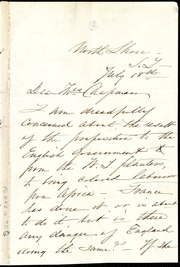 North Shore -
S. I.
July 18th
Dear Mrs Chapman
I am dreadfully
concerned about the result
of the proposition to the
English government to
from the W. I. planters,
to bring colored laborers
from Africa - France
has done it or is about
to do it but is there
any danger of England
doing the same? - If she